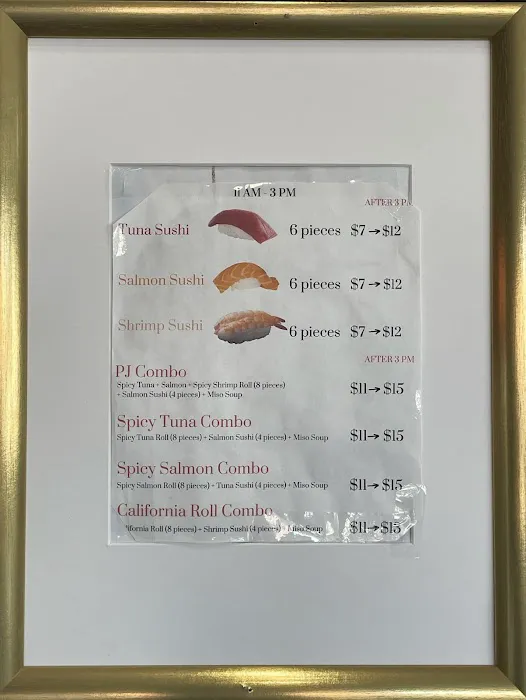 11 AM - 3 PM
AFTER 3 PM
Tuna Sushi 6 pieces $7→$12
Salmon Sushi 6 pieces $7→$12
Shrimp Sushi 6 pieces $7→$12
AFTER 3 PM
PJ Combo
Spicy Tuna + Salmon + Spicy Shrimp Roll (8 pieces)
+ Salmon Sushi (4 pieces) + Miso Soup $11→$15
Spicy Tuna Combo
Spicy Tuna Roll (8 pieces) + Salmon Sushi (4 pieces) + Miso Soup $11→$15
Spicy Salmon Combo
Spicy Salmon Roll (8 pieces) + Tuna Sushi (4 pieces) + Miso Soup $11→$15
California Roll Combo
California Roll (8 pieces) + Shrimp Sushi (4 pieces) + Miso Soup $11→$15